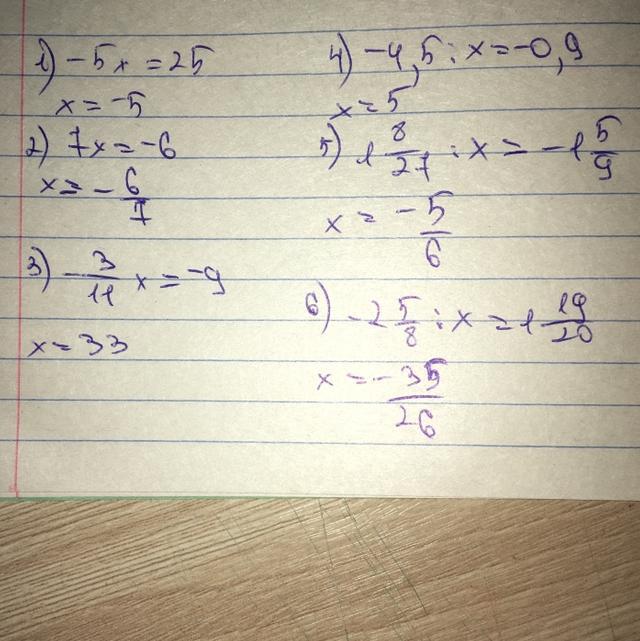 1) -5x = 25
x = -5
2) 7x = -6
x = - 6/7
3) - 3/11 x = -9
x = 33
4) -4,5 : x = -0,9
x = 5
5) 1 8/27 : x = -1 5/9
x = -5/6
6) -2 5/8 : x = 1 19/20
x = - 35/26